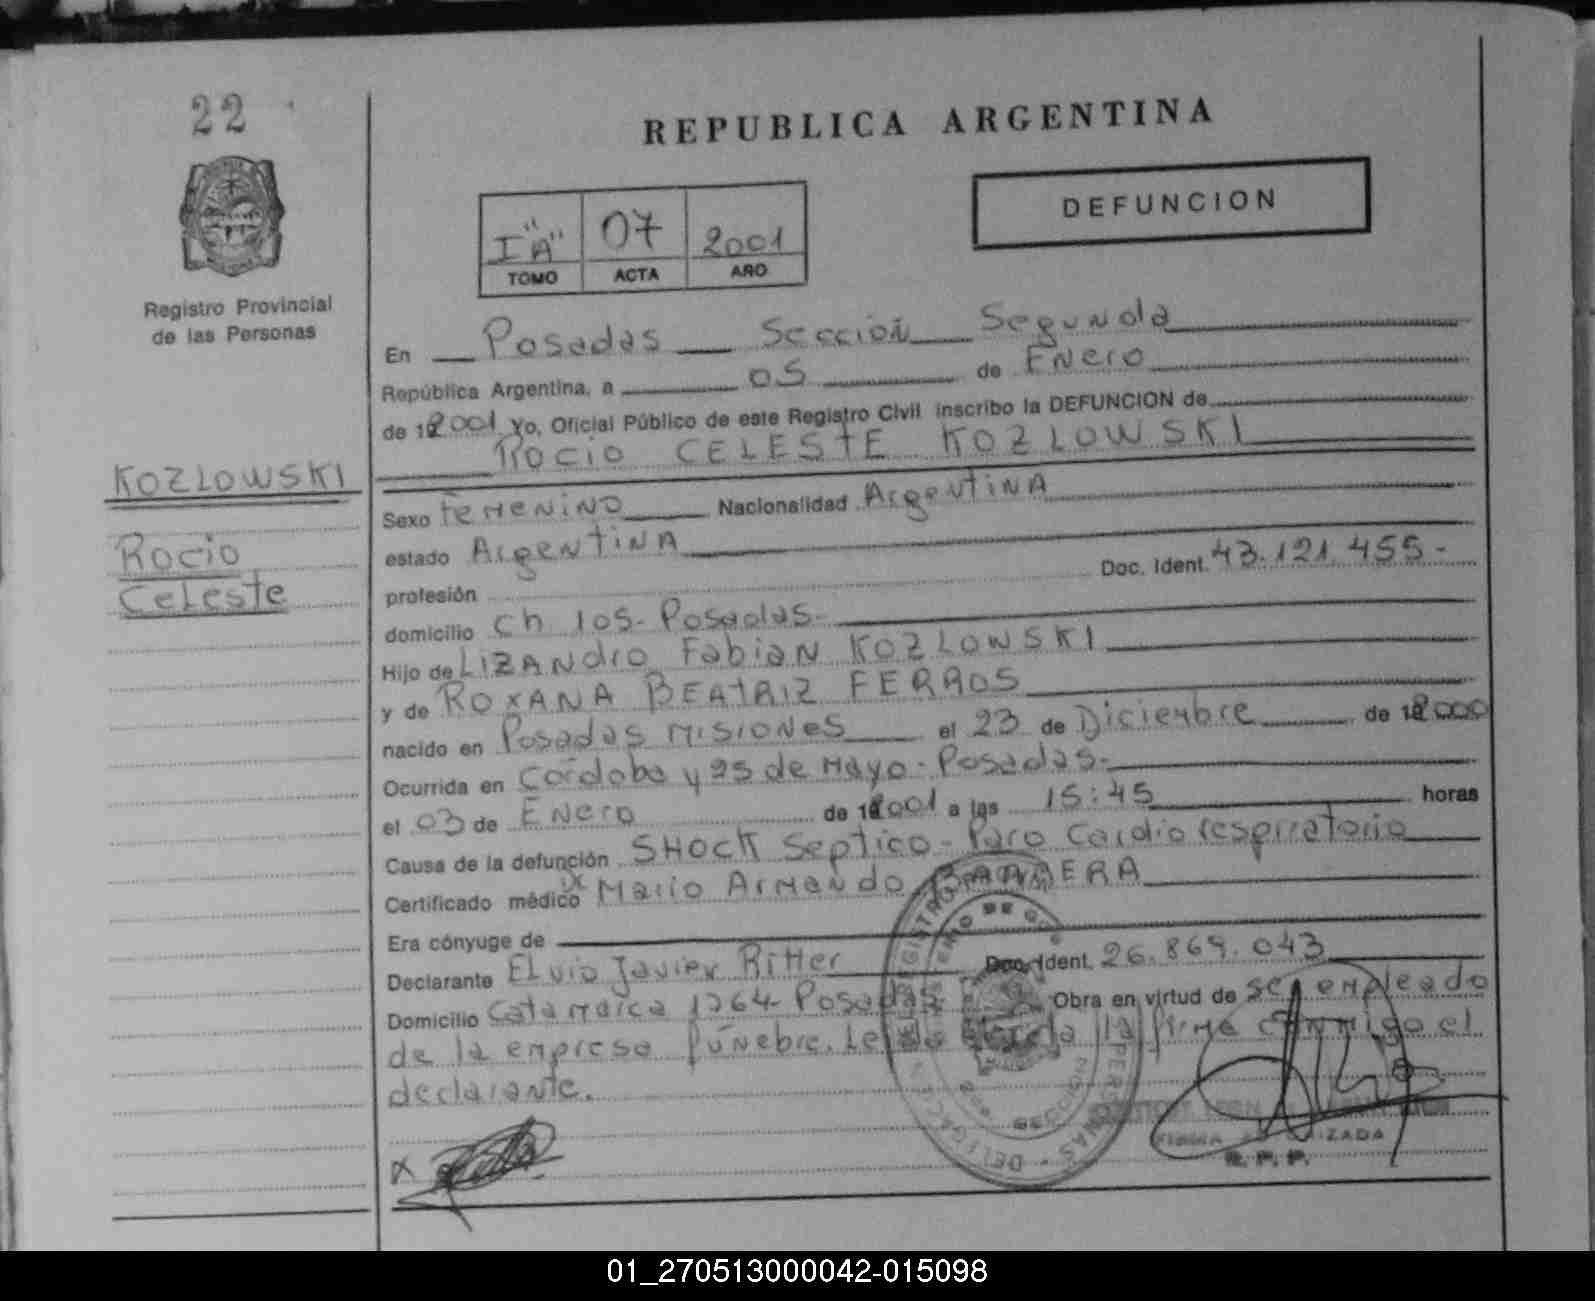 22
REPUBLICA ARGENTINA
DEFUNCION
I "A" 07 2001
TOMO ACTA AÑO
Registro Provincial
de las Personas
En Posadas Sección Segunda
República Argentina, a 05 de Enero
de 2001 Yo, Oficial Público de este Registro Civil inscribo la DEFUNCION de
Rocio CELESTE KOZLOWSKI
KOZLOWSKI
Rocio
Celeste
Sexo Femenino Nacionalidad Argentina
estado Argentina
profesión Doc. Ident. 43.121.455-
domicilio Ch 105- Posadas-
Hijo de LIZANdro Fabian KOZLOWSKI
y de ROXANA BEATRIZ FERROS
nacido en Posadas Misiones el 23 de Diciembre de 2000
Ocurrida en Cordoba y 25 de Mayo - Posadas-
el 03 de Enero de 2001 a las 15:45 horas
Causa de la defunción SHOCK Septico - Paro Cardio respiratorio
Certificado médico Dr Mario Armando
Era cónyuge de
Declarante Elvio Javier Ritter Doc. Ident. 26.869.043
Domicilio Catamarca 1264- Posadas Obra en virtud de ser empleado
de la empresa fúnebre. Leida la firma conmigo el
declarante.
X
FIRMA AUTORIZADA
R. P. P.
01_270513000042-015098